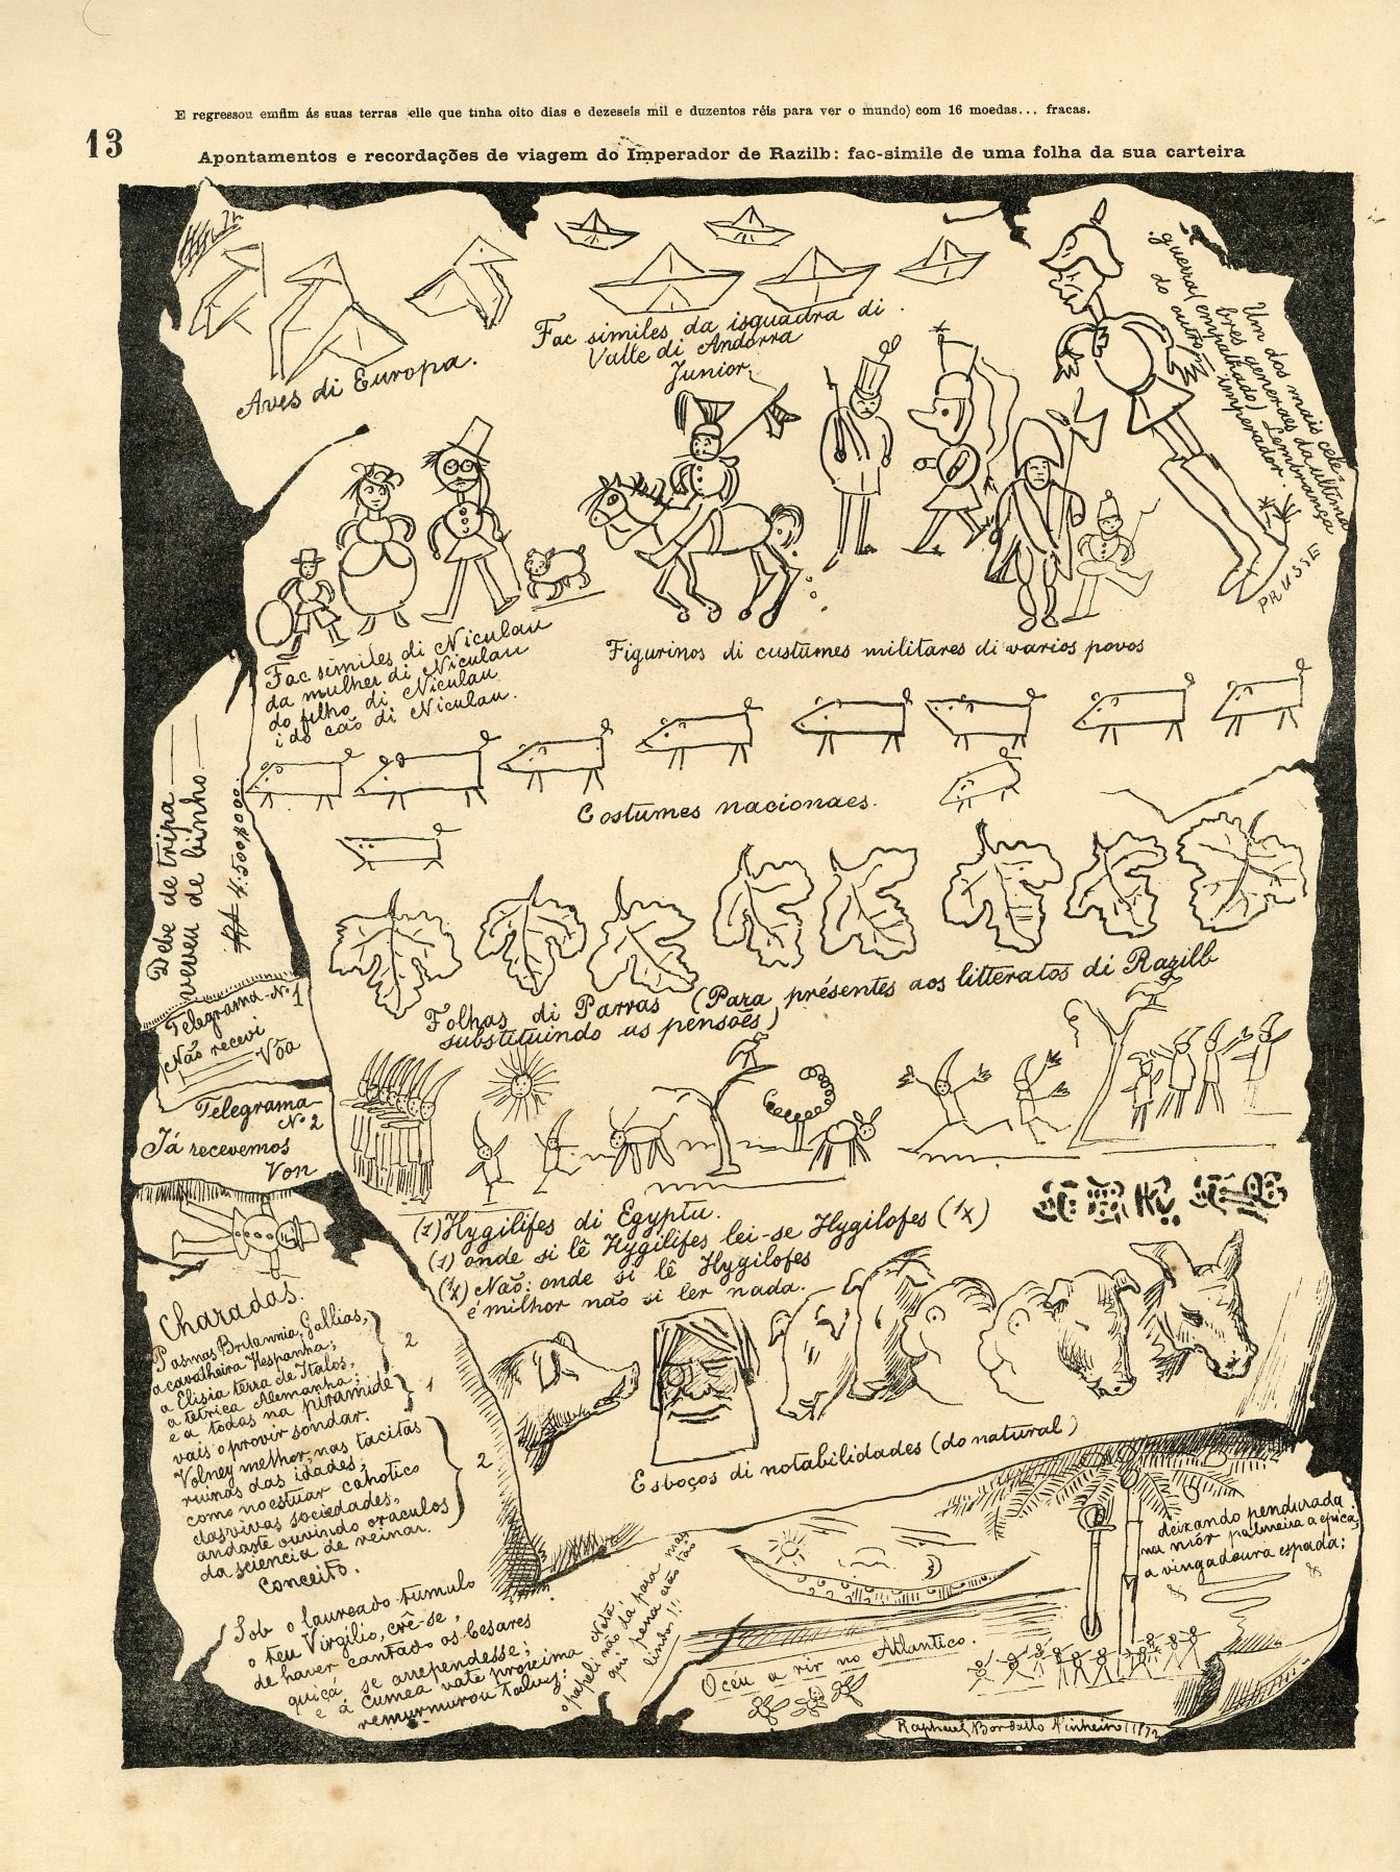 E regressou emfim ás suas terras elle que tinha oito dias e dezeseis mil e duzentos réis para ver o mundo) com 16 moedas... fracas.
13
Apontamentos e recordações de viagem do Imperador de Razilb: fac-simile de uma folha da sua carteira
Aves di Europa.
Fac similes da isquadra di
Valle di Andorra
Junior
Um dos mais cele-
bres generaes da ultima
guerra (empalhado) Lembrança
do outro imperador.
PRUSSE
Fac similes di Niculau
da mulher di Niculau
do filho di Niculau
i do cão di Niculau.
Figurinos di custumes militares di varios povos
Costumes nacionaes.
Debe de tripa
veveu de binho
4:500$000
Folhas di Parras (Para présentes aos litteratos di Razilb
substituindo as pensões)
Telegrama Nº 1
Não recevi
Vôa
Telegrama
Nº 2
Já recevemos
Von
(1) Hygilifes di Egyptu.
(1) onde si lê Hygilifes lei-se Hygilofes (1x)
(1x) Não: onde si lê Hygilofes
é milhor não si ler nada.
Charadas.
Pasmas Britannia, Gallias,
a cavalheira Hespanha;
a Elisia terra de Italos,
a tétrica Alemanha;
2
e a todas na piramide
vais o provir sondar.
1
Volney melhor, nas tacitas
ruinas das idades,
como no estuar cahotico
das vivas sociedades,
andaste ouvindo oraculos
da sciencia de reinar.
2
Conceito.
Sob o laureado tumulo
o teu Virgilio, crê-se,
de haver cantado os Cesares
quiçá se arrependesse;
e á cumea vate proxima
remurmurou talvez:
Esboços di notabilidades (do natural)
Nota,
o papeli não da para mas
qui pena erão tão
lindos!!
deixando pendurada
na miór palmeira a epica,
a vingadoura espada;
Océu a rir no Atlantico.
Raphael Bordallo Pinheiro 1872